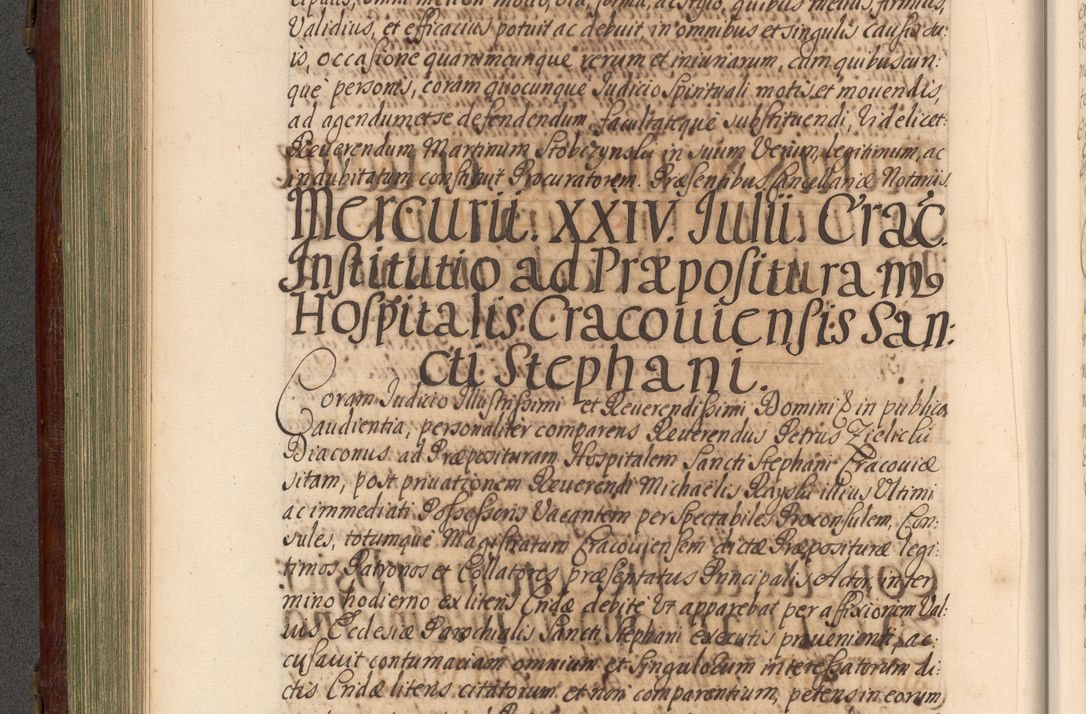 cipalis, omni meliori modo, via, forma, ac stylo, quibus melius, firmius,
Validius, et efficacius potuit ac debuit, in omnibus et singulis causis su:
is, occasione quarumcunque rerum et iniuriarum, cum quibuscun:
que personis, coram quocunque Iudicio Spirituali motis, et mouendis,
ad agendum et se defendendum, facultateque substituendi, Videlicet
Reuerendum Martinum Stobczynski in suum Verum, legitimum, ac
indubitatum constituit Procuratorem. Præsentibus Cancellariæ Notariis.
Mercurii. XXIV. Iulii. Crac̃.
Institutio ad Præposituram
Hospitalis Cracouiensis San:
cti Stephani.
Coram Iudicio Illustrissimi et Reuerendissimi Domini & in publica
audientia, personaliter comparens Reuerendus Petrus Zielicki
Diaconus ad Præposituram Hospitalem Sancti Stephani Cracouiæ
sitam, post priuationem Reuerendi Michaelis Rayski illius Ultimi
ac immediati Possessoris Vacantem per Spectabiles Proconsulem, Con:
sules, totumque Magistratum Cracouiensem dictæ Præpositurae legi:
timos Patronos et Collatores præsentatus Principalis Actor, in ter
mino hodierno ex literis Cridæ debite Ut apparebat per affixionem Val:
uis Ecclesiæ Parochialis Sancti Stephani executis prouenienti, ac:
cusauit contumaciam omnium et Singulorum interessatorum di:
ctis Cridæ literis citatorum, et non comparentium, petens in eorum